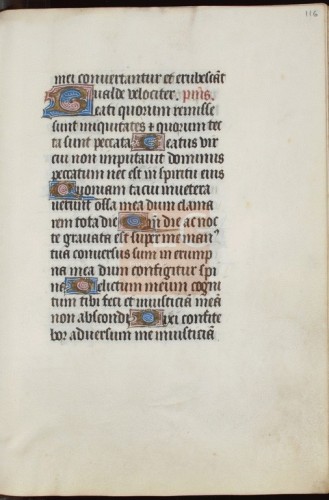 116
mei convertantur et erubescāt
valde velociter. ps̄us.
Beati quorum remisse
sunt iniquitates ⁊ quorum tec
ta sunt peccata Beatus vir
cui non imputavit dominus
peccatum nec est in spiritu eius
Quoniam tacui inuetera
verunt ossa mea dum clama
rem tota die Qm̄ die ac noc
te gravata est super me manꝰ
tua conversus sum in erump
na mea dum configitur spi
na Delictum meum cogni
tum tibi feci et iniusticiā meā
non abscondi Dixi confite
bor adversum me iniusticiā